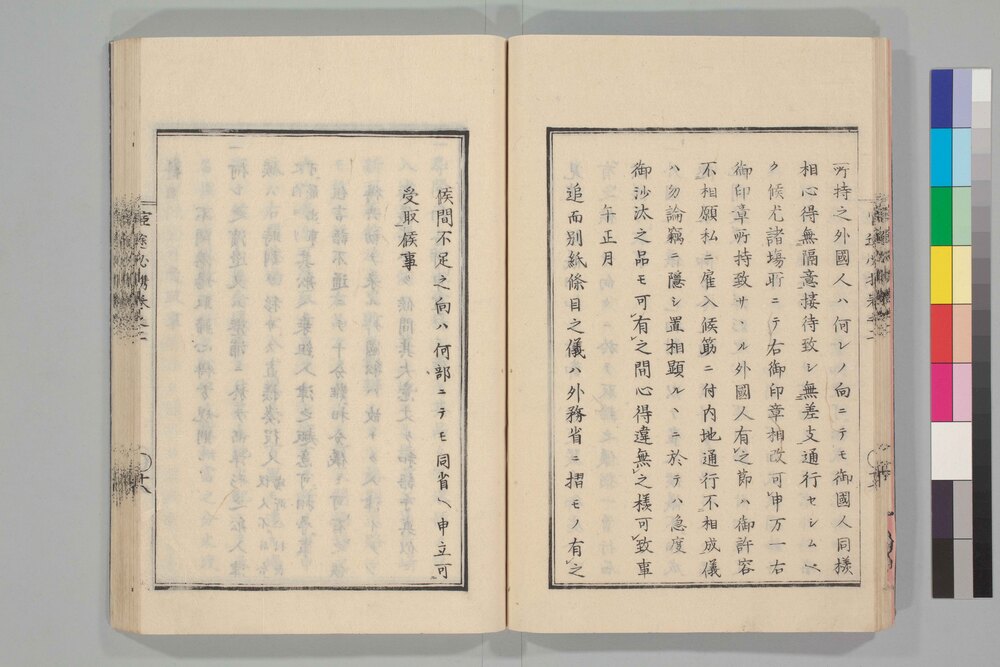 所持之外國人ハ何レノ向ニテモ御國人同樣
相心得無隔意接待致シ無差支通行セシムヘ
ク候尤諸場所ニテ右御印章相改可申万一右
御印章所持致サヽル外國人有之節ハ御許容
不相願私ニ雇入候筋ニ付内地通行不相成儀
ハ勿論竊ニ隱シ置相顯ルヽニ於テハ急度
御沙汰之品モ可有之間心得違無之樣可致事
午正月
追而别紙條目之儀ハ外務省ニ摺モノ有之
候間不足之向ハ何部ニテモ同省ヘ申立可
受取候事